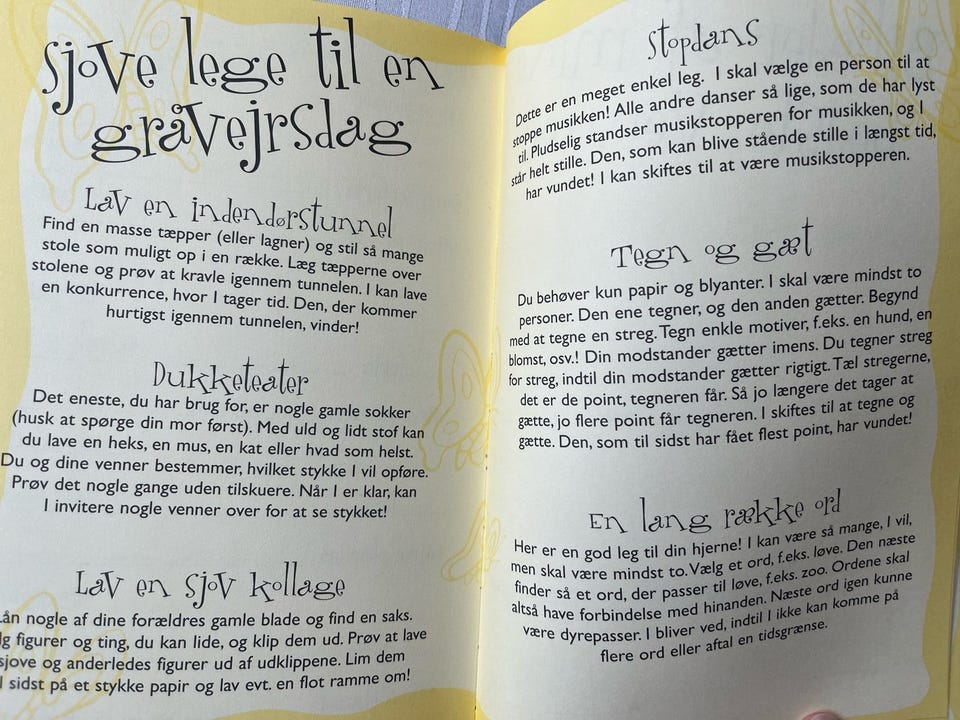 sjove lege til en
gråvejrsdag
Lav en indendørstunnel
Find en masse tæpper (eller lagner) og stil så mange
stole som muligt op i en række. Læg tæpperne over
stolene og prøv at kravle igennem tunnelen. I kan lave
en konkurrence, hvor I tager tid. Den, der kommer
hurtigst igennem tunnelen, vinder!
Dukketeater
Det eneste, du har brug for, er nogle gamle sokker
(husk at spørge din mor først). Med uld og lidt stof kan
du lave en heks, en mus, en kat eller hvad som helst.
Du og dine venner bestemmer, hvilket stykke I vil opføre.
Prøv det nogle gange uden tilskuere. Når I er klar, kan
I invitere nogle venner over for at se stykket!
Lav en sjov kollage
Lån nogle af dine forældres gamle blade og find en saks.
figurer og ting, du kan lide, og klip dem ud. Prøv at lave
sjove og anderledes figurer ud af udklippene. Lim dem
sidst på et stykke papir og lav evt. en flot ramme om!
stopdans
Dette er en meget enkel leg. I skal vælge en person til at
stoppe musikken! Alle andre danser så lige, som de har lyst
til. Pludselig standser musikstopperen for musikken, og I
står helt stille. Den, som kan blive stående stille i længst tid,
har vundet! I kan skiftes til at være musikstopperen.
Tegn og gæt
Du behøver kun papir og blyanter. I skal være mindst to
personer. Den ene tegner, og den anden gætter. Begynd
med at tegne en streg. Tegn enkle motiver, f.eks. en hund, en
blomst, osv.! Din modstander gætter imens. Du tegner streg
for streg, indtil din modstander gætter rigtigt. Tæl stregerne,
det er de point, tegneren får. Så jo længere det tager at
gætte, jo flere point får tegneren. I skiftes til at tegne og
gætte. Den, som til sidst har fået flest point, har vundet!
En lang række ord
Her er en god leg til din hjerne! I kan være så mange, I vil,
men skal være mindst to. Vælg et ord, f.eks. løve. Den næste
finder så et ord, der passer til løve, f.eks. zoo. Ordene skal
altså have forbindelse med hinanden. Næste ord igen kunne
være dyrepasser. I bliver ved, indtil I ikke kan komme på
flere ord eller aftal en tidsgrænse.